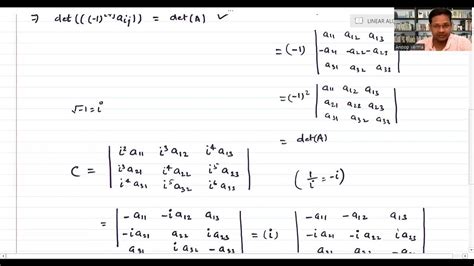 ⇒ det(((-1)^{i+j} a_{ij})) = det(A) ✓
LINEAR AL
Anoop Verma
= (-1) | a11 a12 a13 |
| -a21 -a22 -a23 |
| a31 a32 a33 |
√-1 = i
= (-1)^2 | a11 a12 a13 |
| a21 a22 a23 |
| a31 a32 a33 |
= det(A)
C = | i^2 a11 i^3 a12 i^4 a13 |
| i^3 a21 i^4 a22 i^5 a23 |
| i^4 a31 i^5 a32 i^6 a33 |
(1/i = -i)
= | -a11 -i a12 a13 | = (i) | -a11 -a12 a13 |
| -i a21 a22 i a23 | | -i a21 -i a22 i a23 |
| a31 i a32 -a33 |